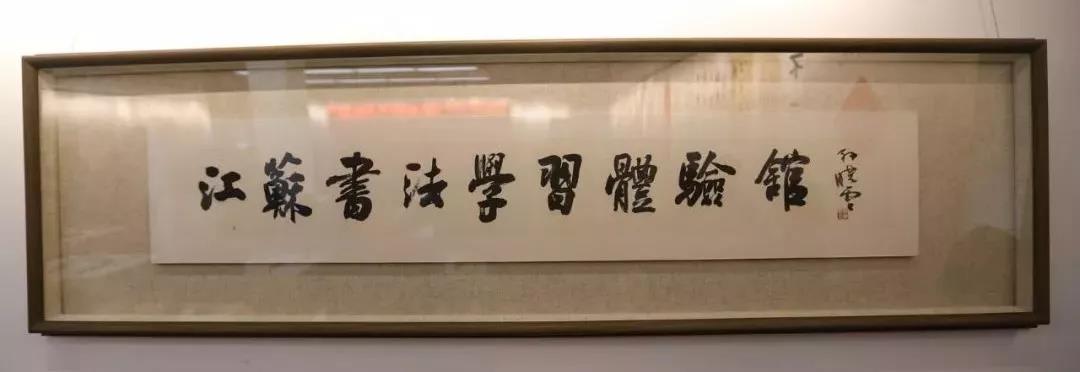 江蘇書法學習體驗館
孙曉雲